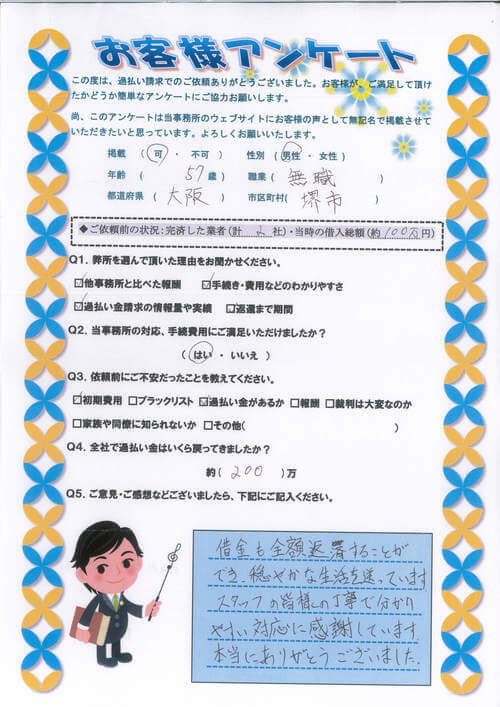 お客様アンケート
この度は、過払い請求でのご依頼ありがとうございました。お客様が、ご満足して頂け
たかどうか簡単なアンケートにご協力お願いします。
尚、このアンケートは当事務所のウェブサイトにお客様の声として無記名で掲載させて
いただきたいと思っています。よろしくお願いいたします。
掲載 ( 可 ・ 不可 ) 性別 ( 男性 ・ 女性 )
年齢 ( 57 歳 ) 職業 ( 無職 )
都道府県 ( 大阪 ) 市区町村( 堺市 )
◆ご依頼前の状況:完済した業者(計 2 社)・当時の借入総額(約 100万 円)
Q1. 弊所を選んで頂いた理由をお聞かせください。
☑他事務所と比べた報酬 ☑手続き・費用などのわかりやすさ
☑過払い金請求の情報量や実績 □返還まで期間
Q2. 当事務所の対応、手続費用にご満足いただけましたか?
( はい ・ いいえ )
Q3. 依頼前にご不安だったことを教えてください。
☑初期費用 □ブラックリスト ☑過払い金があるか □報酬 □裁判は大変なのか
□家族や同僚に知られないか □その他( )
Q4. 全社で過払い金はいくら戻ってきましたか?
約( 200 )万
Q5. ご意見・ご感想などございましたら、下記にご記入ください。
借金も全額返済することが
でき、穏やかな生活を送っています
スタッフの皆様の丁寧で分かり
やすい対応に感謝しています
本当にありがとうございました。